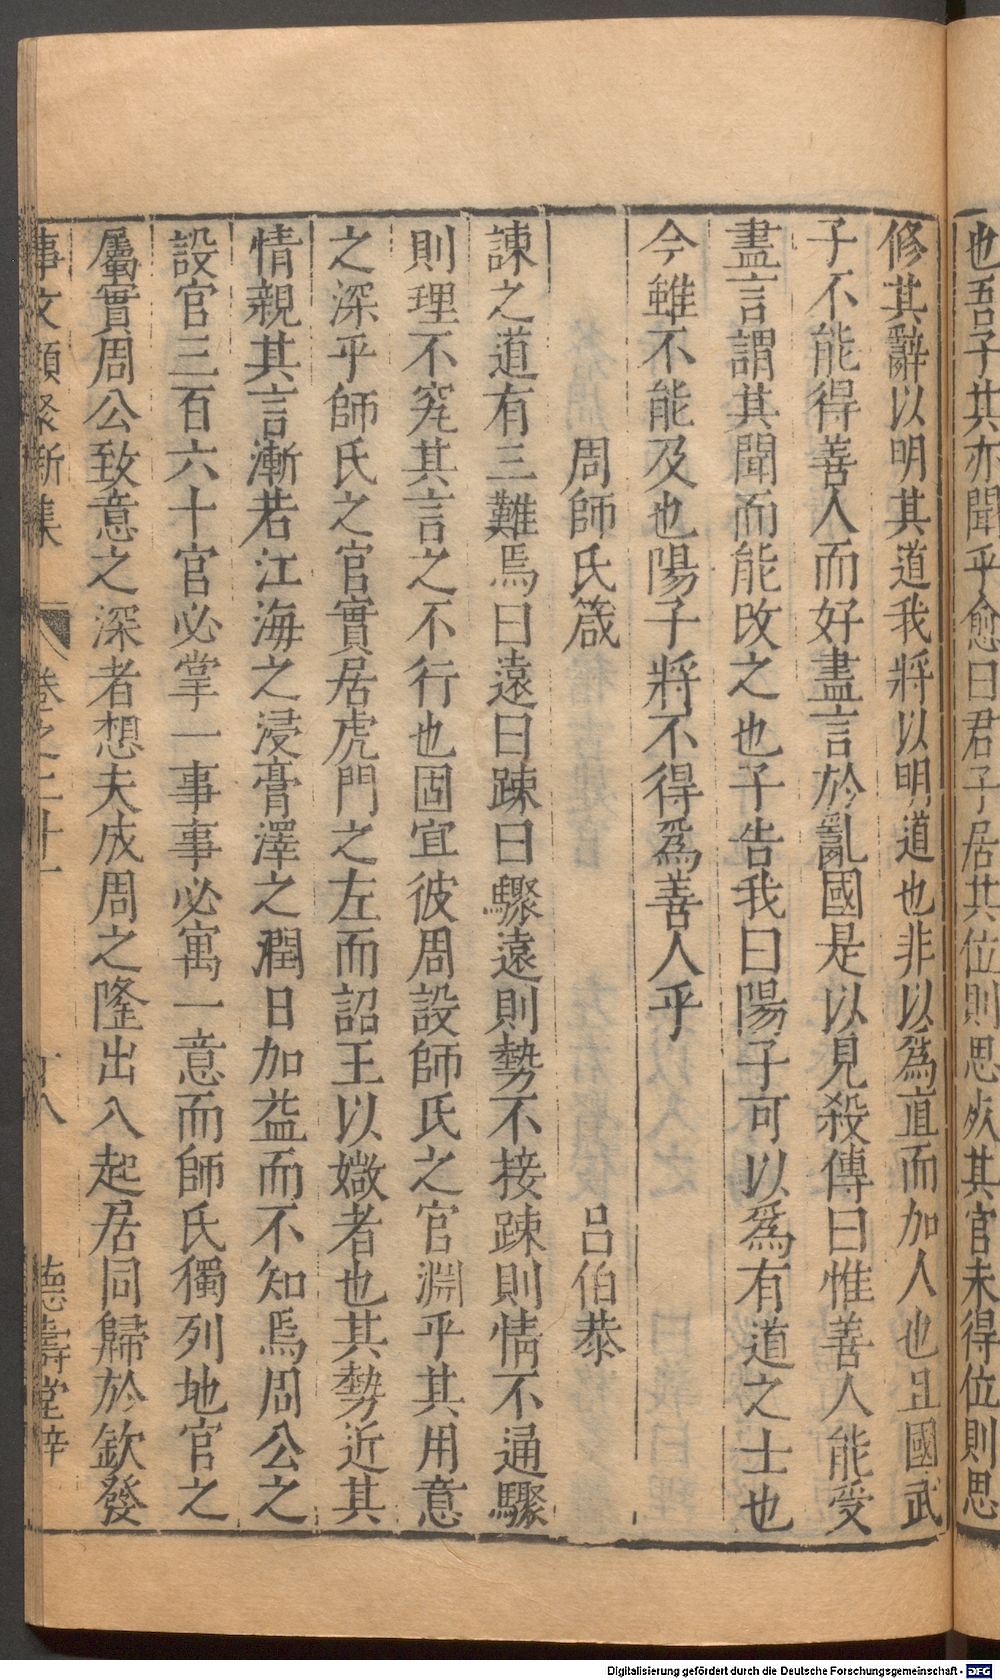 也吾子其亦聞乎愈曰君子居其位則思死其官未得位則思
修其辭以明其道我將以明道也非以爲直而加人也且國武
子不能得善人而好盡言於亂國是以見殺傳曰惟善人能受
盡言謂其聞而能改之也子告我曰陽子可以爲有道之士也
今雖不能及也陽子將不得爲善人乎
周師氏箴 呂伯恭
諫之道有三難焉曰遠曰踈曰驟遠則勢不接踈則情不通驟
則理不究其言之不行也固宜彼周設師氏之官淵乎其用意
之深乎師氏之官實居虎門之左而詔王以媺者也其勢近其
情親其言漸若江海之浸膏澤之潤日加益而不知焉周公之
設官三百六十官必掌一事事必寓一意而師氏獨列地官之
屬實周公致意之深者想夫成周之隆出入起居同歸於欽發
事文類聚新集 卷之二十一 十八 德壽堂梓
Digitalisierung gefördert durch die Deutsche Forschungsgemeinschaft - DFG